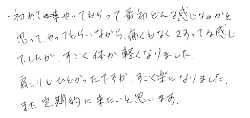 ・初めて施術やってもらって最初どんな感じなのかと
思ってやってもらいながら、痛くもなくさすってる感じ
でしたが、すごく体が軽くなりました。
肩こりもひどかったですが、すごく楽になりました。
また定期的に来たいと思います。